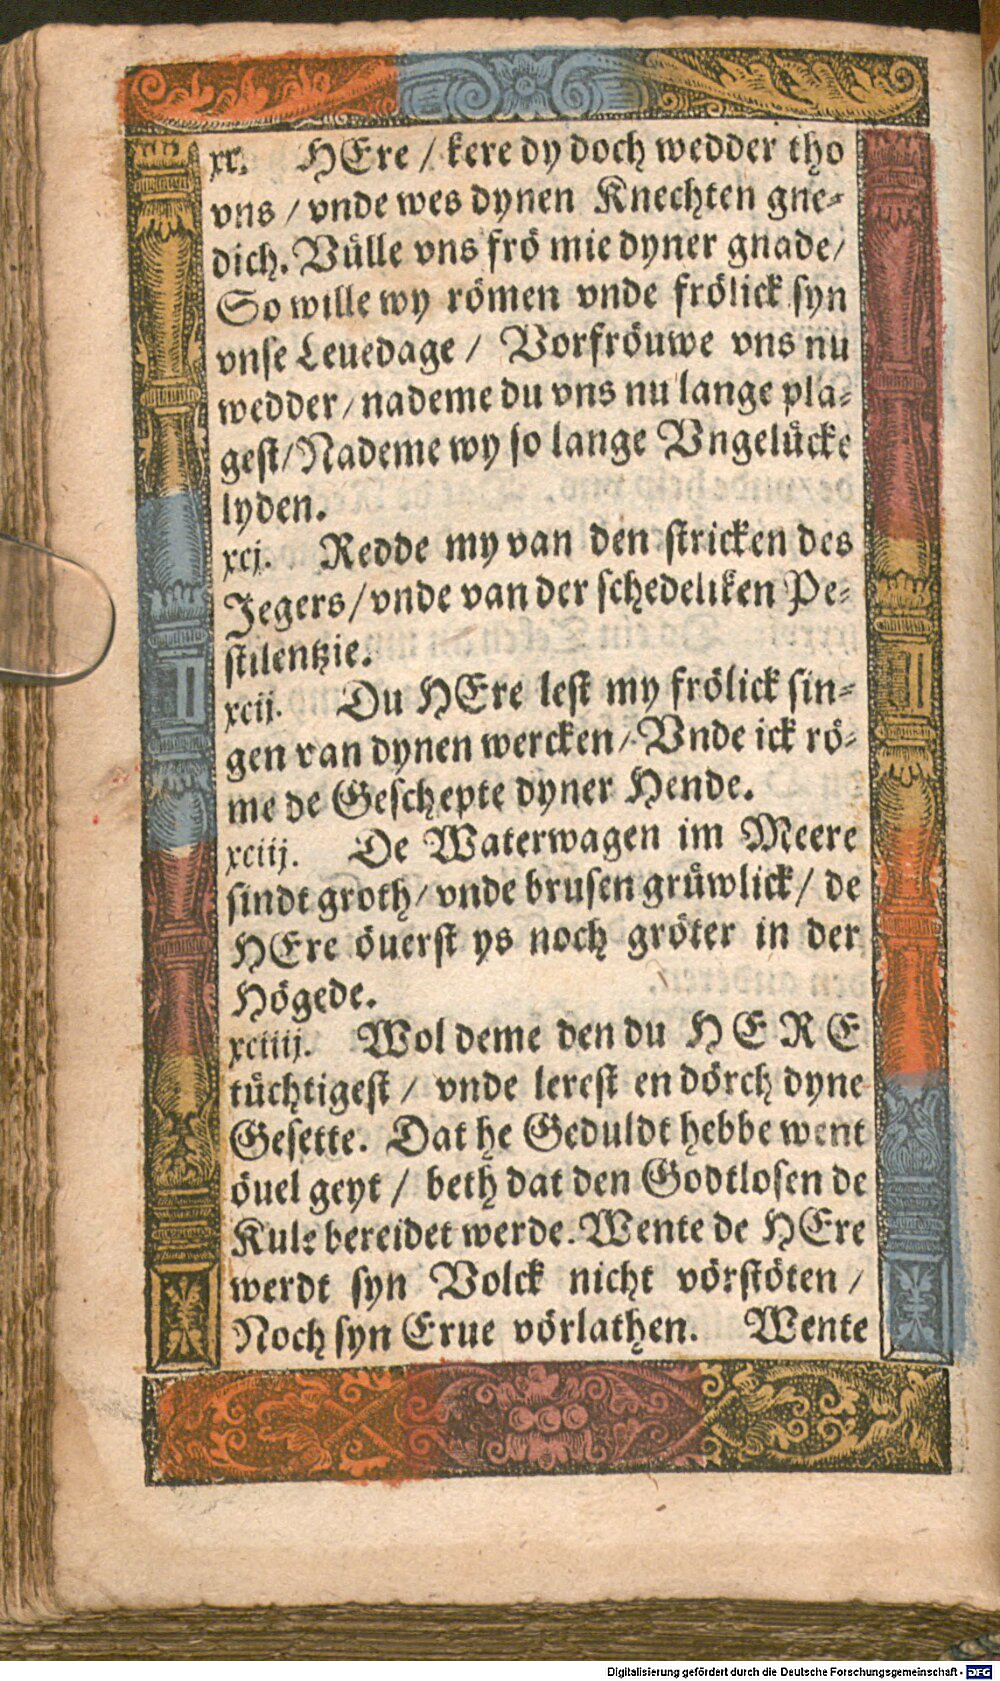 xc. HEre / kere dy doch wedder tho
vns / vnde wes dynen Knechten gne⸗
dich. Vülle vns frö mie dyner gnade /
So wille wy römen vnde frölick syn
vnse Leuedage / Vorfröuwe vns nu
wedder / nademe du vns nu lange pla⸗
gest / Nademe wy so lange Vngelücke
lyden.
xcj. Redde my van den stricken des
Jegers / vnde van der schedeliken Pe⸗
stilentzie.
xcij. Du HEre lest my frölick sin⸗
gen van dynen wercken / Vnde ick rö⸗
me de Geschepte dyner Hende.
xciij. De Waterwagen im Meere
sindt groth / vnde brusen grüwlick / de
HEre öuerst ys noch gröter in der
Högede.
xciiij. Wol deme den du HERE
tüchtigest / vnde lerest en dörch dyne
Gesette. Dat he Geduldt hebbe went
öuel geyt / beth dat den Godtlosen de
Kule bereidet werde. Wente de HEre
werdt syn Volck nicht vörstöten /
Noch syn Erue vörlathen. Wente
Digitalisierung gefördert durch die Deutsche Forschungsgemeinschaft - DFG